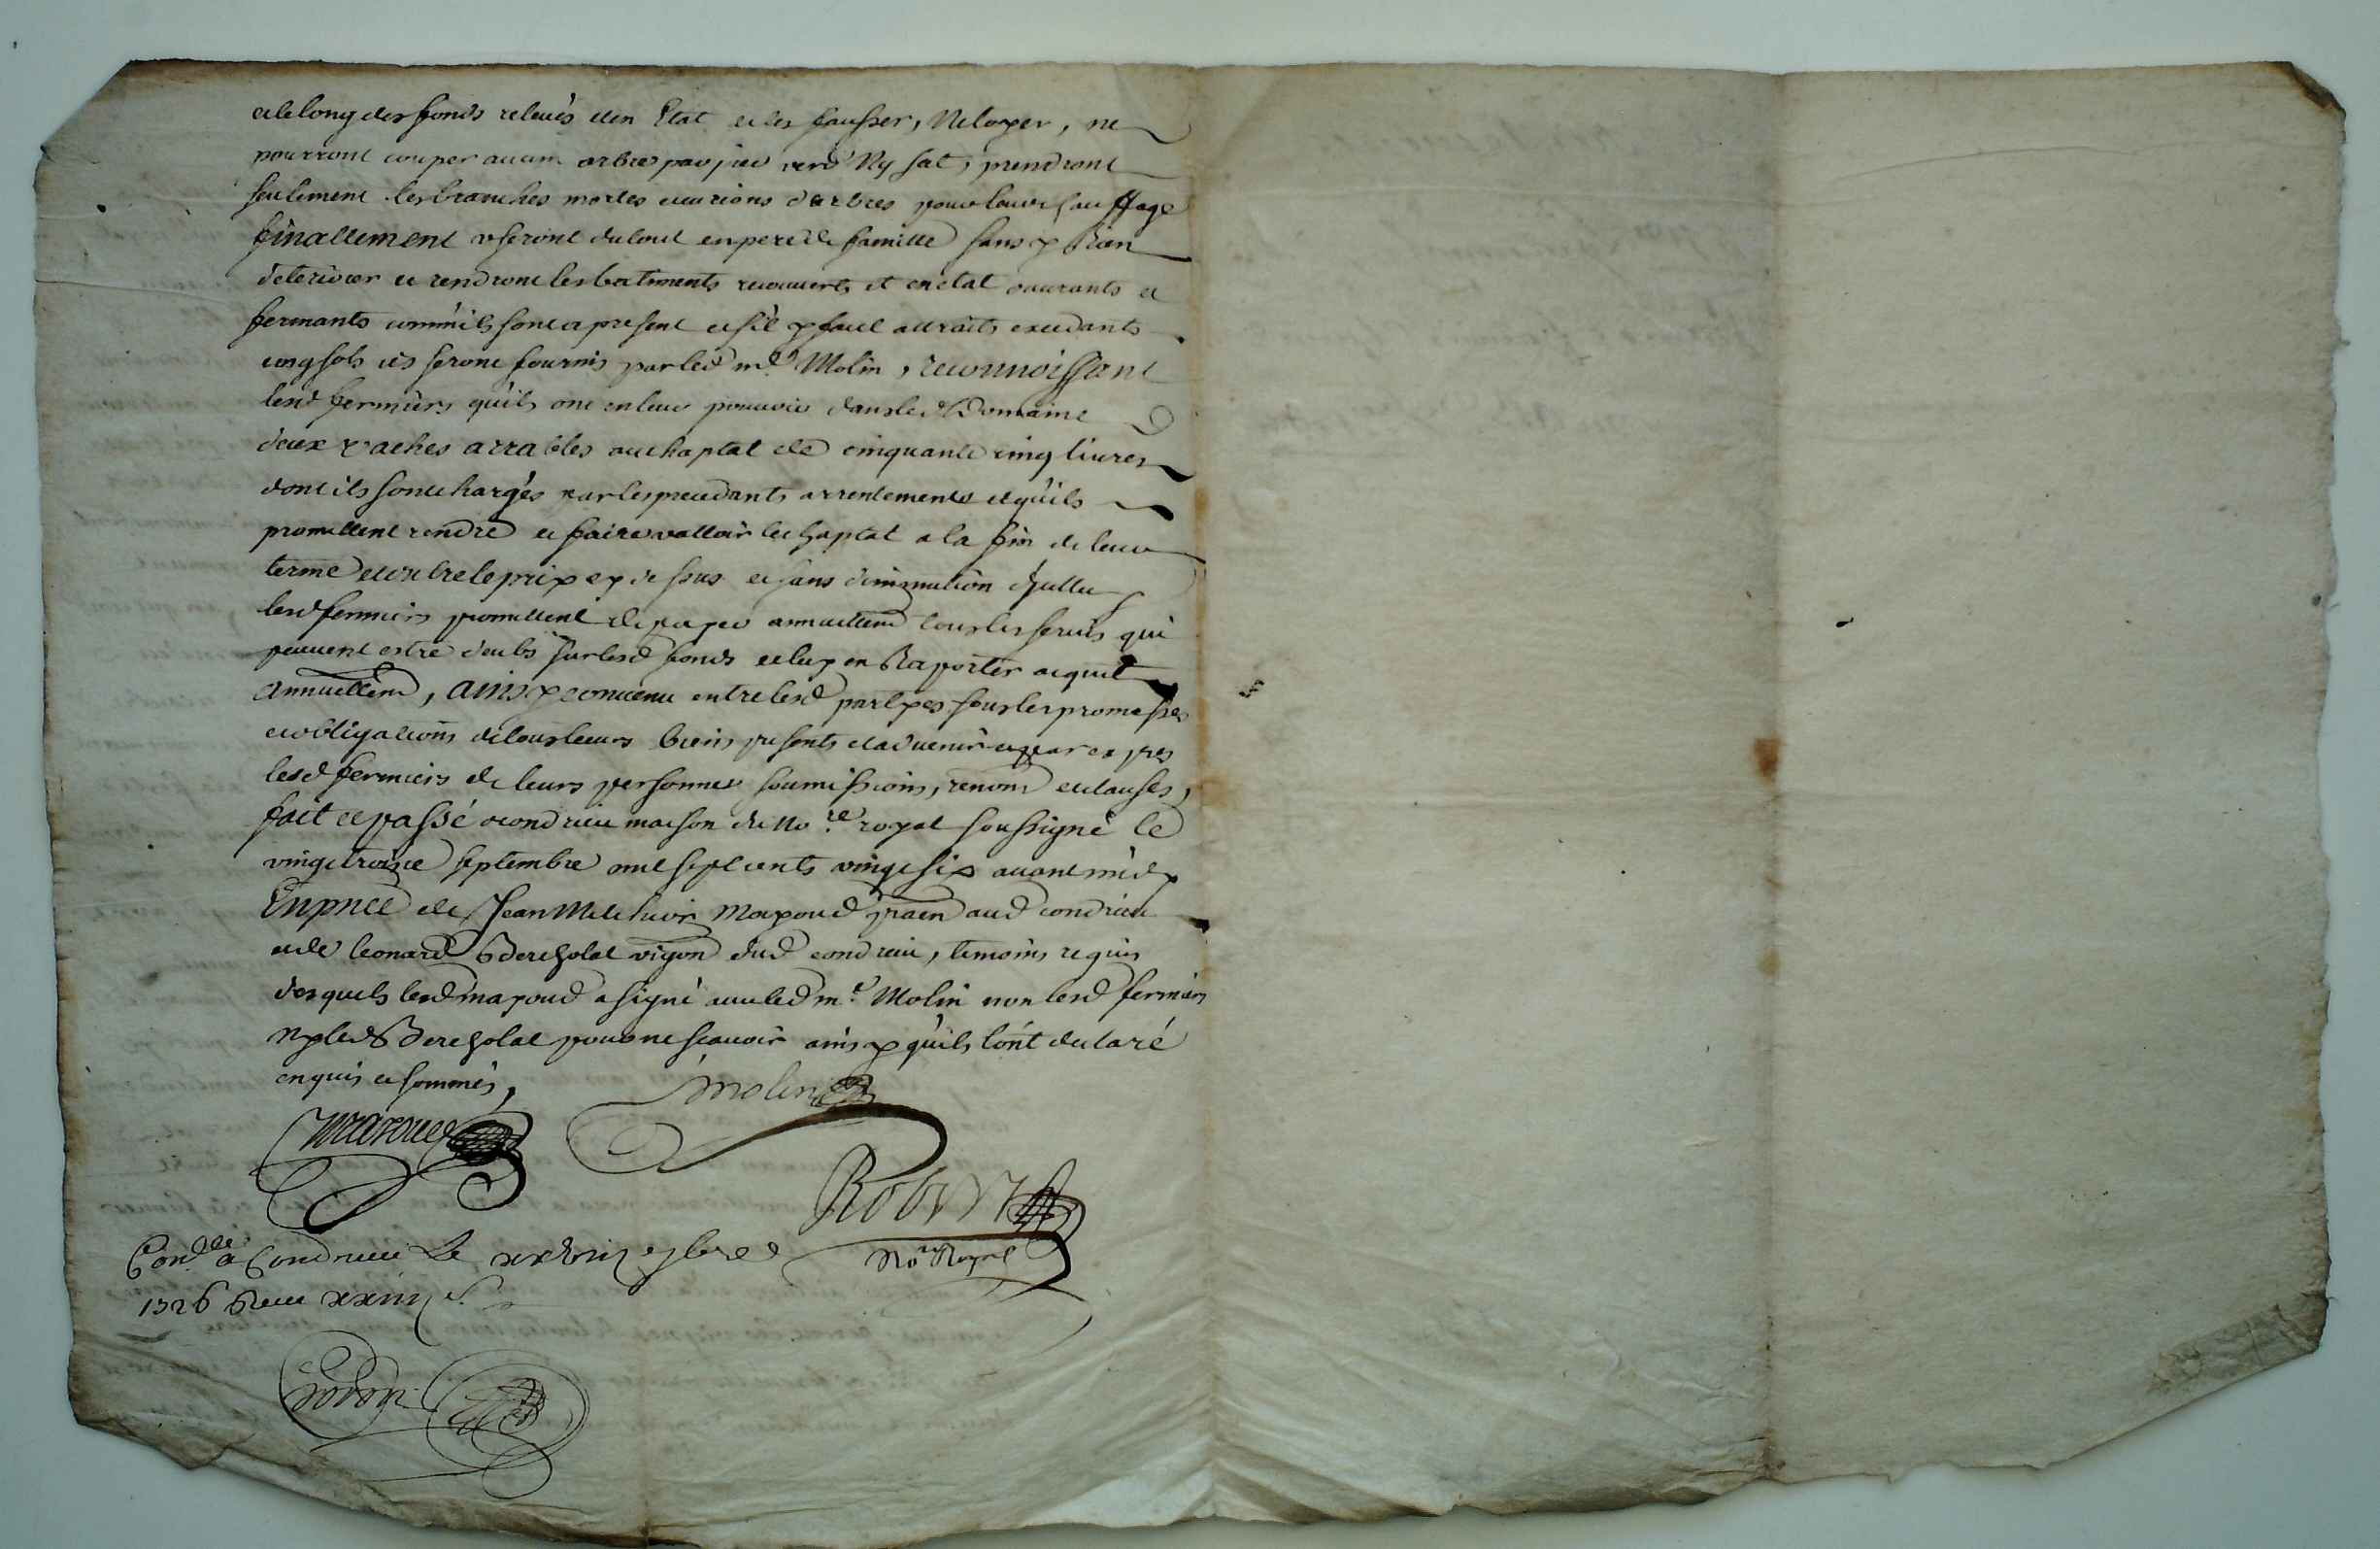 et le long des fonds relevés et en Etat et les fausser, Neloyer, ne
pourront couper aucun arbres par pied verd Ny sat, prendront
seulement les branches mortes et curions d'arbres pour leur chauffage
finallement useront du tout en pere de famille sans y Rien
deteriorer et rendront les batiments recouverts et en etat ouurants et
fermants comm'ils sont a present et s'il y faut attraits excedants
cinq sols ils seront fournis par led me Molin, reconnoissant
lesd fermiers qu'ils ont en leur pouvoir dans led Domaine
deux vaches arrables au chaptal de cinquante cinq liures
dont ils sont chargés par les precedants arrentements et qu'ils
promettent rendre et faire valloir led chaptal a la fin de leur
terme et outre le prix cy dessus et sans diminution d'jcelluy
lesd fermiers promettent de payer annuellemt tous les seruis qui
peuuent estre deubs sur lesd fonds et luy en Raporter acquit
annuellemt, ainsy conuenu entre lesd partyes sous les promesses
et obligations de tous leurs biens presents et aduenir et par expres
lesd fermiers de leurs personnes soumissions, renond et clauses,
fait et passé a condrieu maison du no.re royal soussigné le
vingt troisie septembre mil sept cents vingt six auant midy
En pnce de Jean Melchior Mayoud prãen aud condrieu
et de leonard Bercholat vigon dud condrieu, temoins requis
desquels led mayoud a signé auec led me. Molin non lesd fermiers
ny led Bercholat pour ne scauoir ainsy qu'ils l'ont declaré
enquis et sommés,
Molin
Mayoud
Robert
No.re Royal
Con.lle a Condrieu Le 7bre
1726 Receu